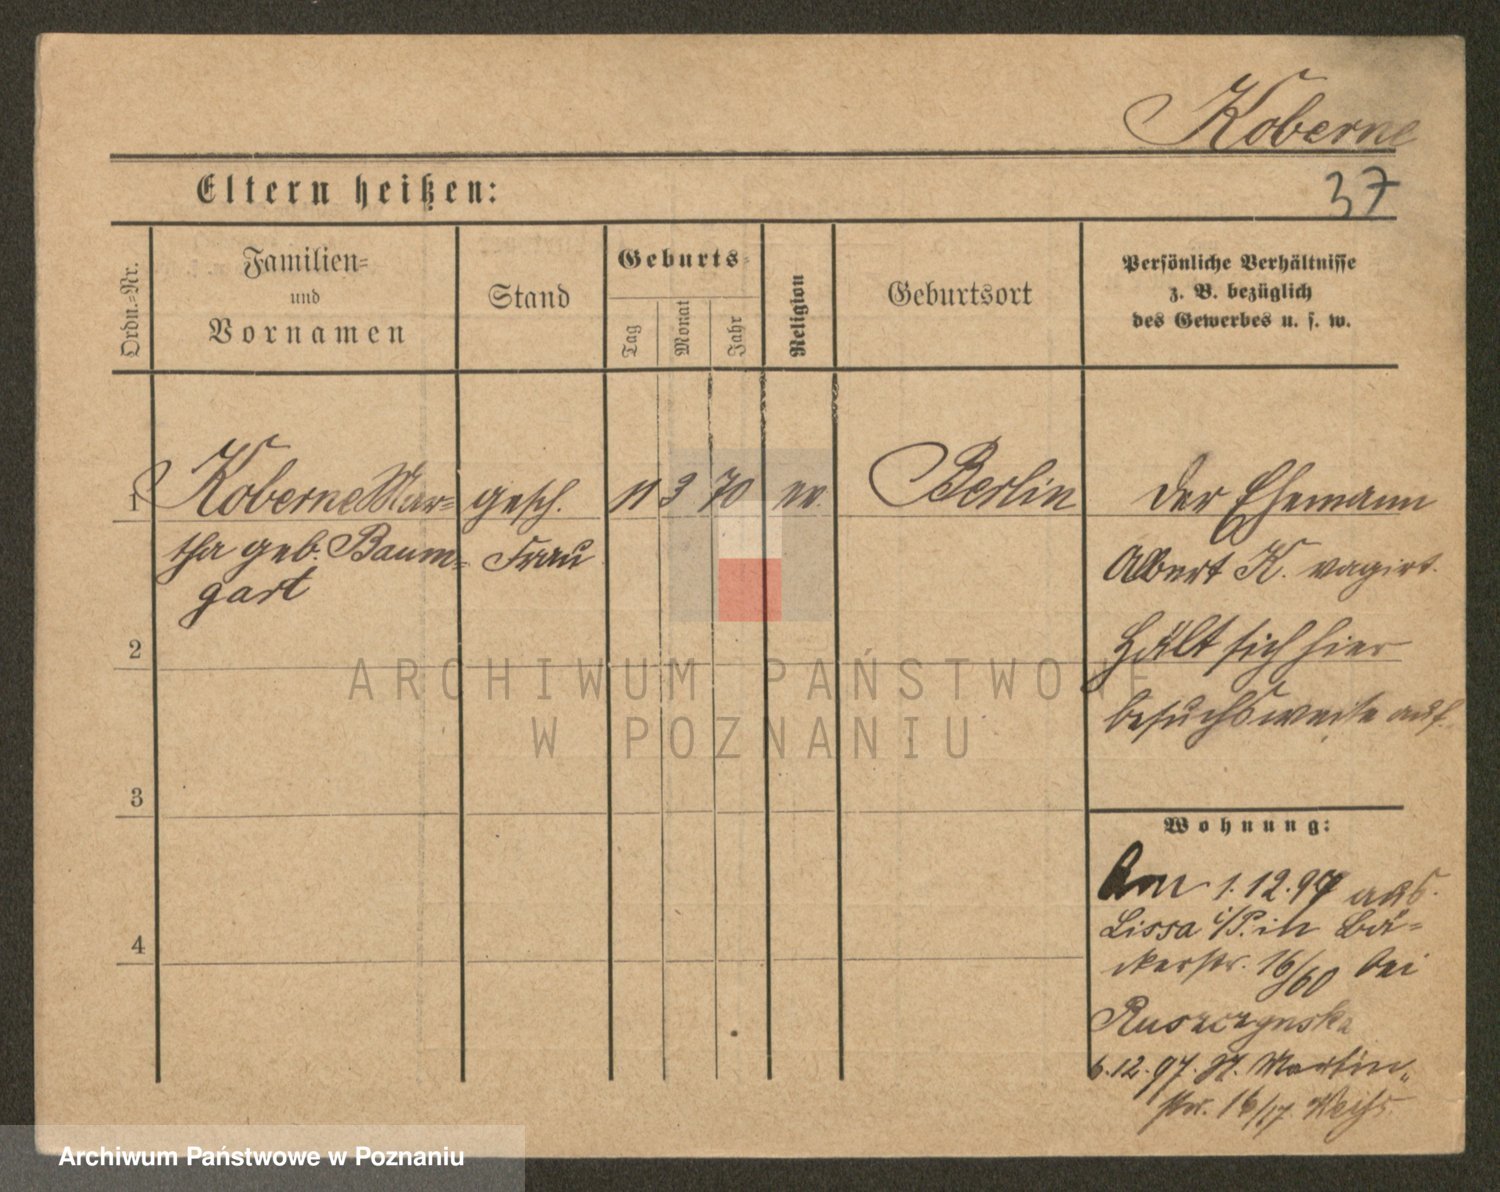 Koberne
37
Eltern heißen:
Ordn.-Nr.
Familien-
und
Vornamen
Stand
Geburts-
Tag
Monat
Jahr
Religion
Geburtsort
Persönliche Verhältnisse
z. B. bezüglich
des Gewerbes u. s. w.
1 Koberne Mar- gesch. 11 3 70 ev. Berlin der Ehemann
tha geb. Baum- Frau Albert K. vagirt.
gart
2 Hält sich hier
besuchsweise auf.
3
Wohnung:
Am 1.12.97 aus
Lissa i/P. in Bä-
ckerstr. 16/60 bei
Ruszczynska
6.12.97. St. Martin-
str. 16/17 Weiß
4
ARCHIWUM PAŃSTWOWE
W POZNANIU
Archiwum Państwowe w Poznaniu